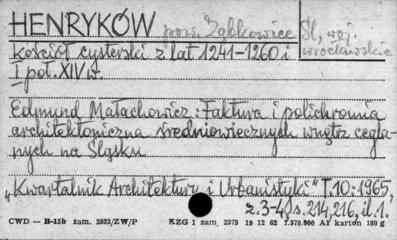 HENRYKÓW pow. Ząbkowice Śl, woj. wrocławskie
Kościół cysterski z lat 1241-1260 i
I poł. XIV w.
Edmund Małachowicz: Faktura i polichromia
architektoniczna średniowiecznych wnętrz cegla-
nych na Śląsku
„Kwartalnik Architektury i Urbanistyki" T.10:1965,
z.3-4, s. 214, 216, il. 1.
CWD — H-15b zam. 2832/ZW/P KZG 1 zam. 2375 19 12 62 T.570.000 A1 karton 180 g